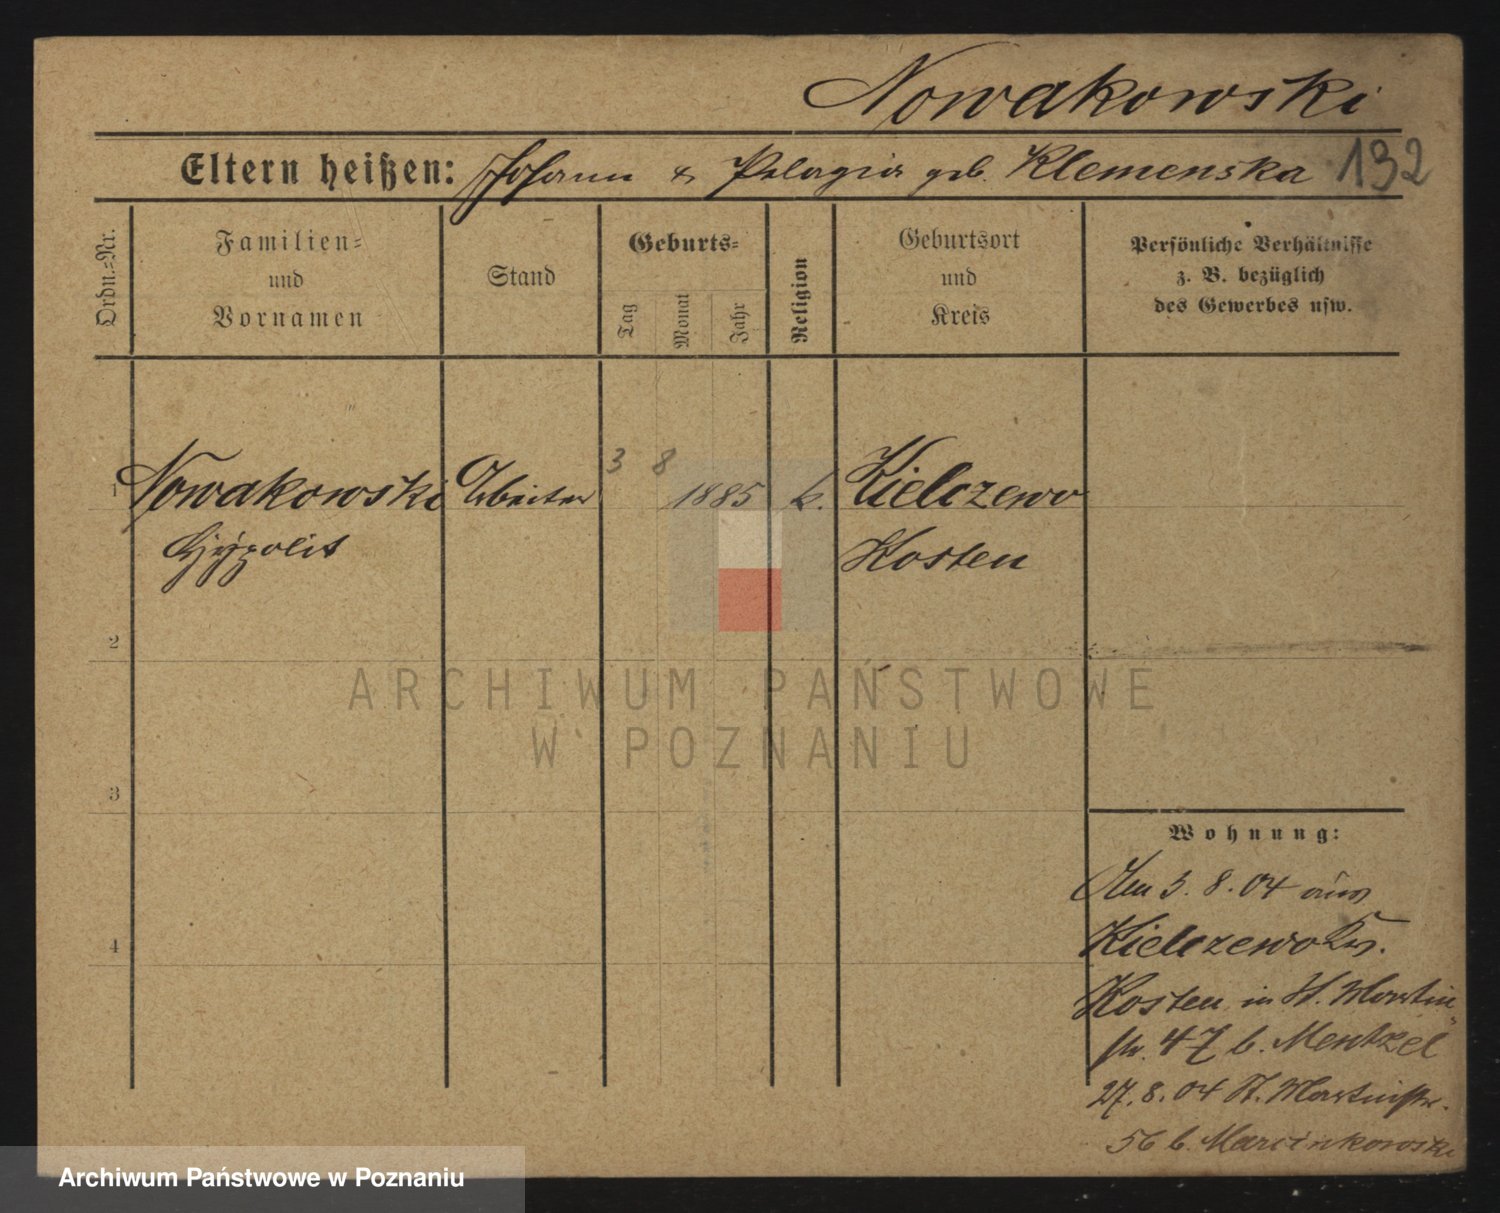 Nowakowski
Eltern heißen: Johann & Pelagia geb. Klemenska 132
Ordn.-Nr.
Familien-
und
Vornamen
Stand
Geburts-
Tag
Monat
Jahr
Religion
Geburtsort
und
Kreis
Persönliche Verhältnisse
z. B. bezüglich
des Gewerbes usw.
1 Nowakowski Arbeiter 3 8 1885 k. Kielczewo
Hypolit Kosten
2
ARCHIWUM PAŃSTWOWE
W POZNANIU
3
Wohnung:
Den 3. 8. 04 aus
4 Kielczewo Krs.
Kosten in St. Martin
str. 47 b. Mentzel
27. 8. 04 St. Martinstr.
56 b. Marcinkowski
Archiwum Państwowe w Poznaniu